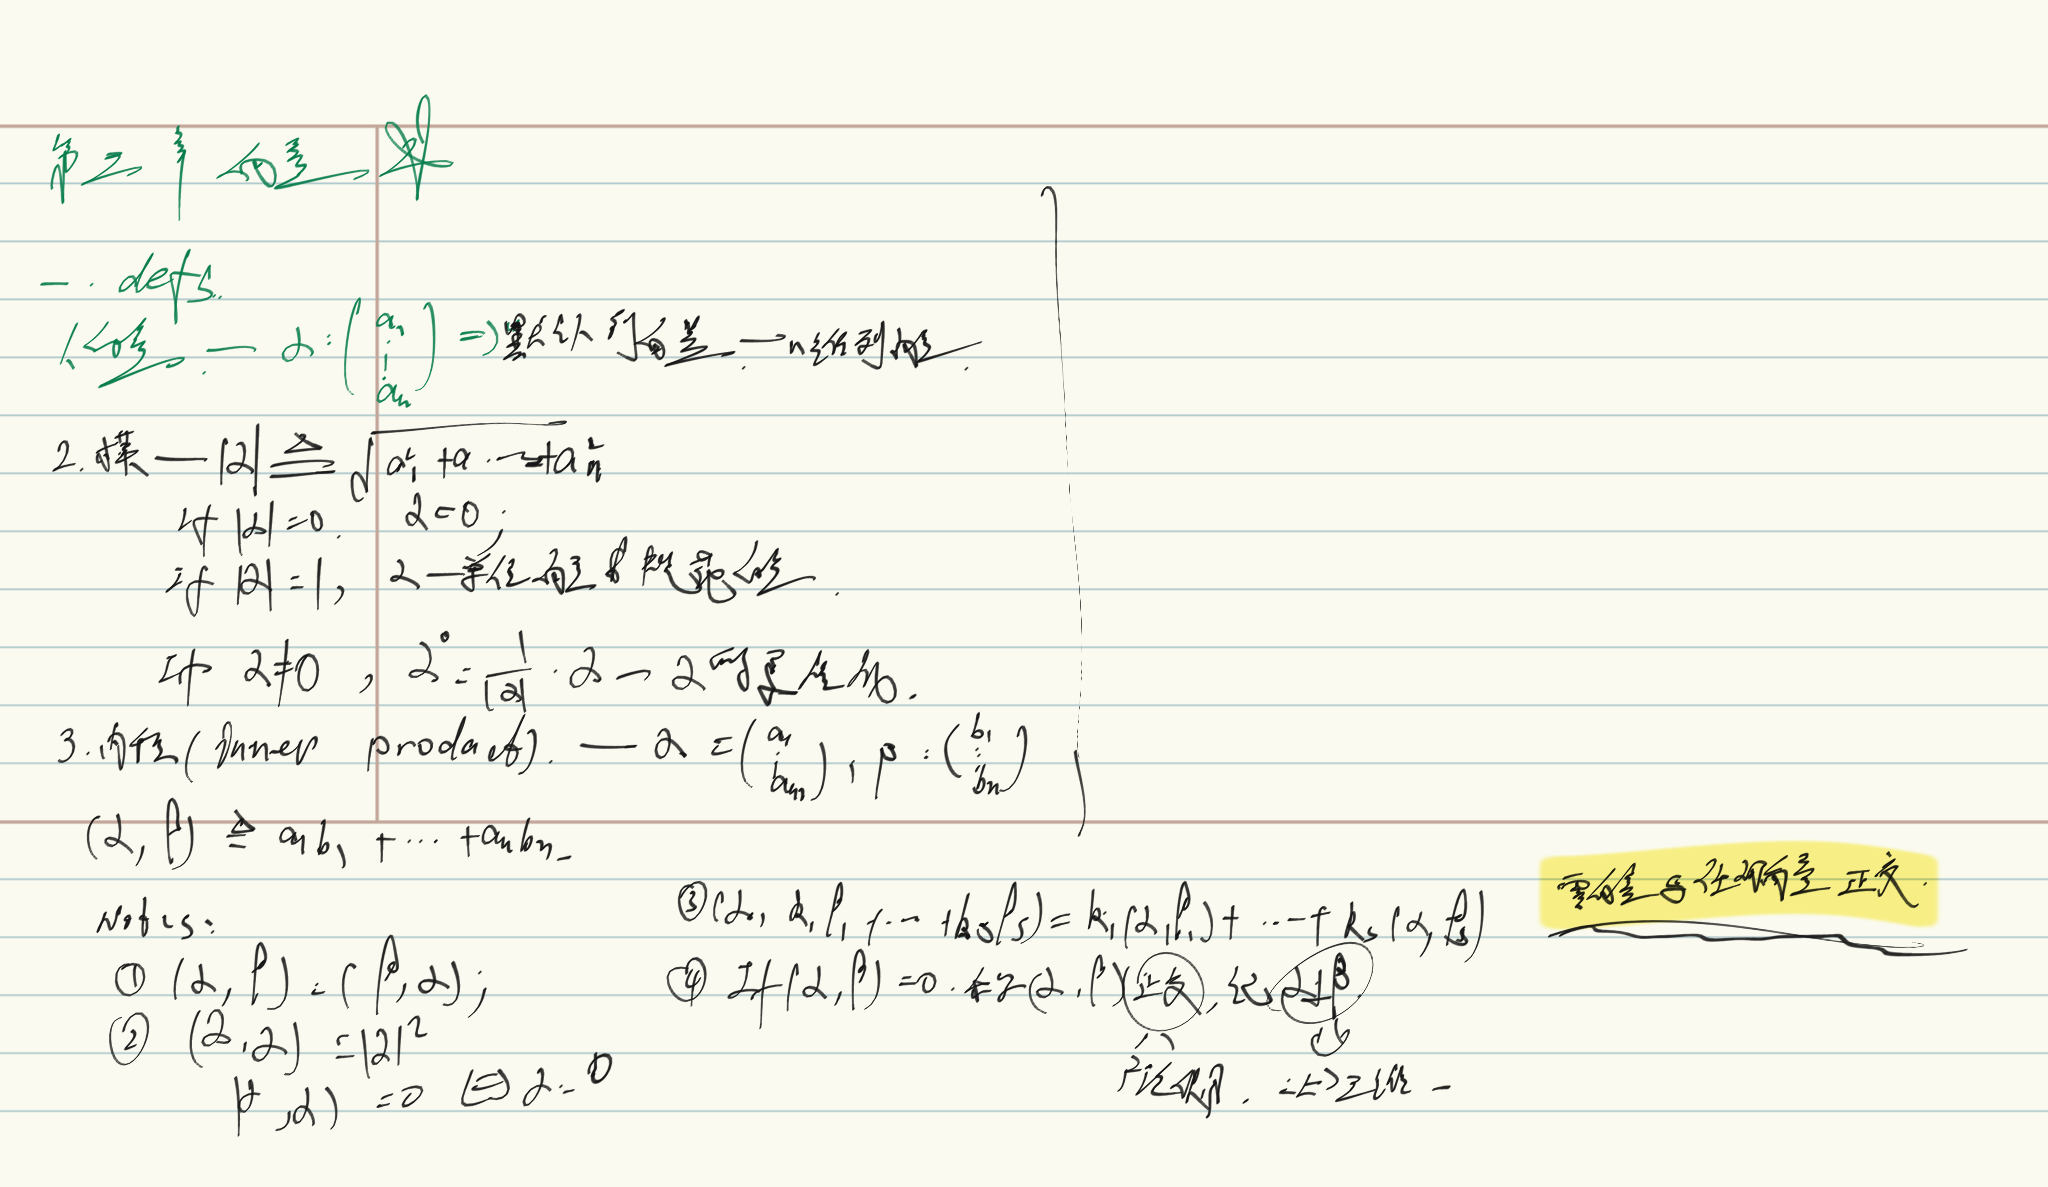 第二章 向量
一. defs.
1. 向量 — α: (a₁ ⋮ aₙ) => 默认 行向量 — n维列向量.
2. 模 — |α| ≜ √(a₁² + a ⋯ + aₙ²)
if |α| = 0. α = 0;
if |α| = 1, α — 单位向量 规范向量.
If α ≠ 0, α° = 1/|α| · α — α
3. 内积 (Inner product). — α = (a₁ ⋮ aₙ), β: (b₁ ⋮ bₙ)
(α, β) ≜ a₁b₁ + ⋯ + aₙbₙ
Notes:
① (α, β) = (β, α);
② (α, α) = |α|²
(α, α) = 0 ⇔ α = 0
③ (α, k₁β₁ + ⋯ + kₛβₛ) = k₁(α, β₁) + ⋯ + kₛ(α, βₛ)
④ If (α, β) = 0. 称 (α, β) 正交, 记 α⊥β
零向量与任何向量正交.